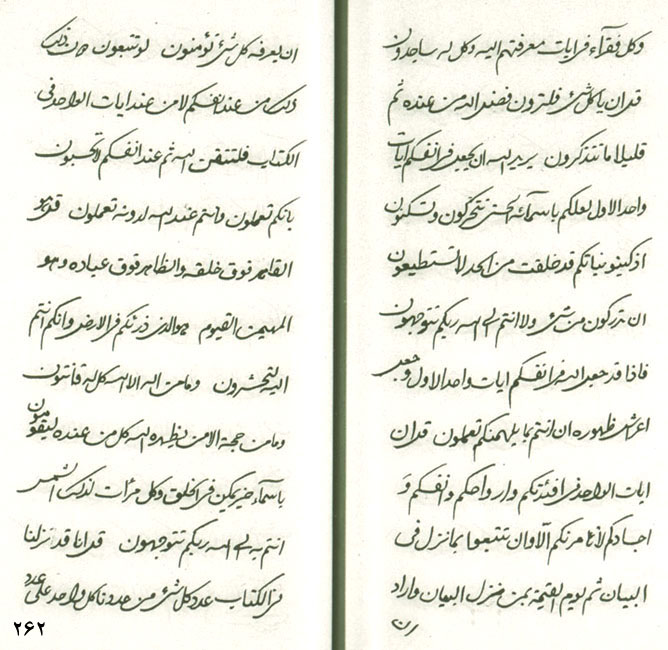 وكل فقرآء فى ايات معرفتهم اليه وكل له ساجدون
قد ان ياكل شئ فلترون فضل الله من عنده ثم
قليلا ما تتذكرون يريد الله ان يجعل فى انفسكم ايات
واحد الاول لعلكم باسمآئه الحسنى تتحركون وتسكنون
اذ كينونياتكم قد خلقت من الحد لا تستطيعون
ان تدركون من شئ ولا انتم الى الله ربكم تتوجهون
فاذا قد جعل الله فى انفسكم ايات واحد الاول وجعل
اعراش ظهوره ان انتم بما يلهمنكم تعملون قد ان
ايات الواحد فى افئدتكم وارواحكم وانفسكم و
اجسادكم لا تامرنكم الا وان تتبعوا بما نزل فى
البيان ثم يوم القيمة بمن منزل البيان واراد
ان يعرفه كل شئ تؤمنون لو تتبعون من ذلك
ذلك من عند انفسكم لا من عند ايات الواحد فى
الكتاب فلتتقن الله ثم عند انفسكم لا تحسبون
بانكم تعملون وانتم عند الله لدونه تعملون قل هو
القاهر فوق خلقه والظاهر فوق عباده وهو
المهيمن القيوم هو الذى ذرئكم فى الارض وانكم انتم
اليه لتحشرون وما من اله الا الله كل له قانتون
وما من حجة الا من يظهره الله كل من عنده ليقومون
باسمآء خير يمكن فى الخلق وكل مرآت لذلك الشمس
انتم به الى الله ربكم تتوجهون قل انا قد نزلنا
فى الكتاب عدد كل شئ من حدودنا كل واحد على عدد
۲۶۲